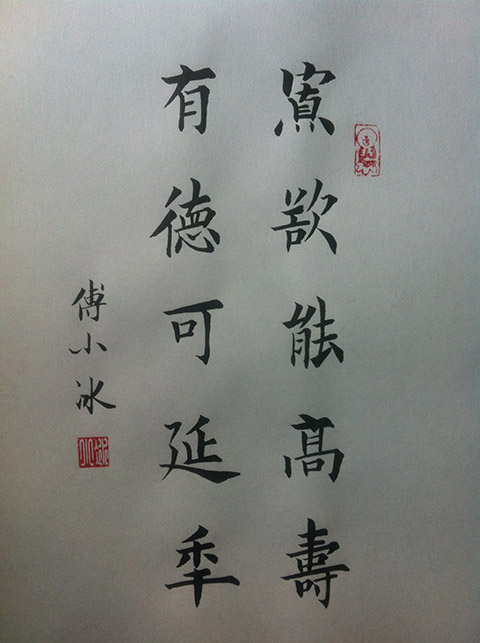 寡欲能高壽
有德可延年
傅小冰